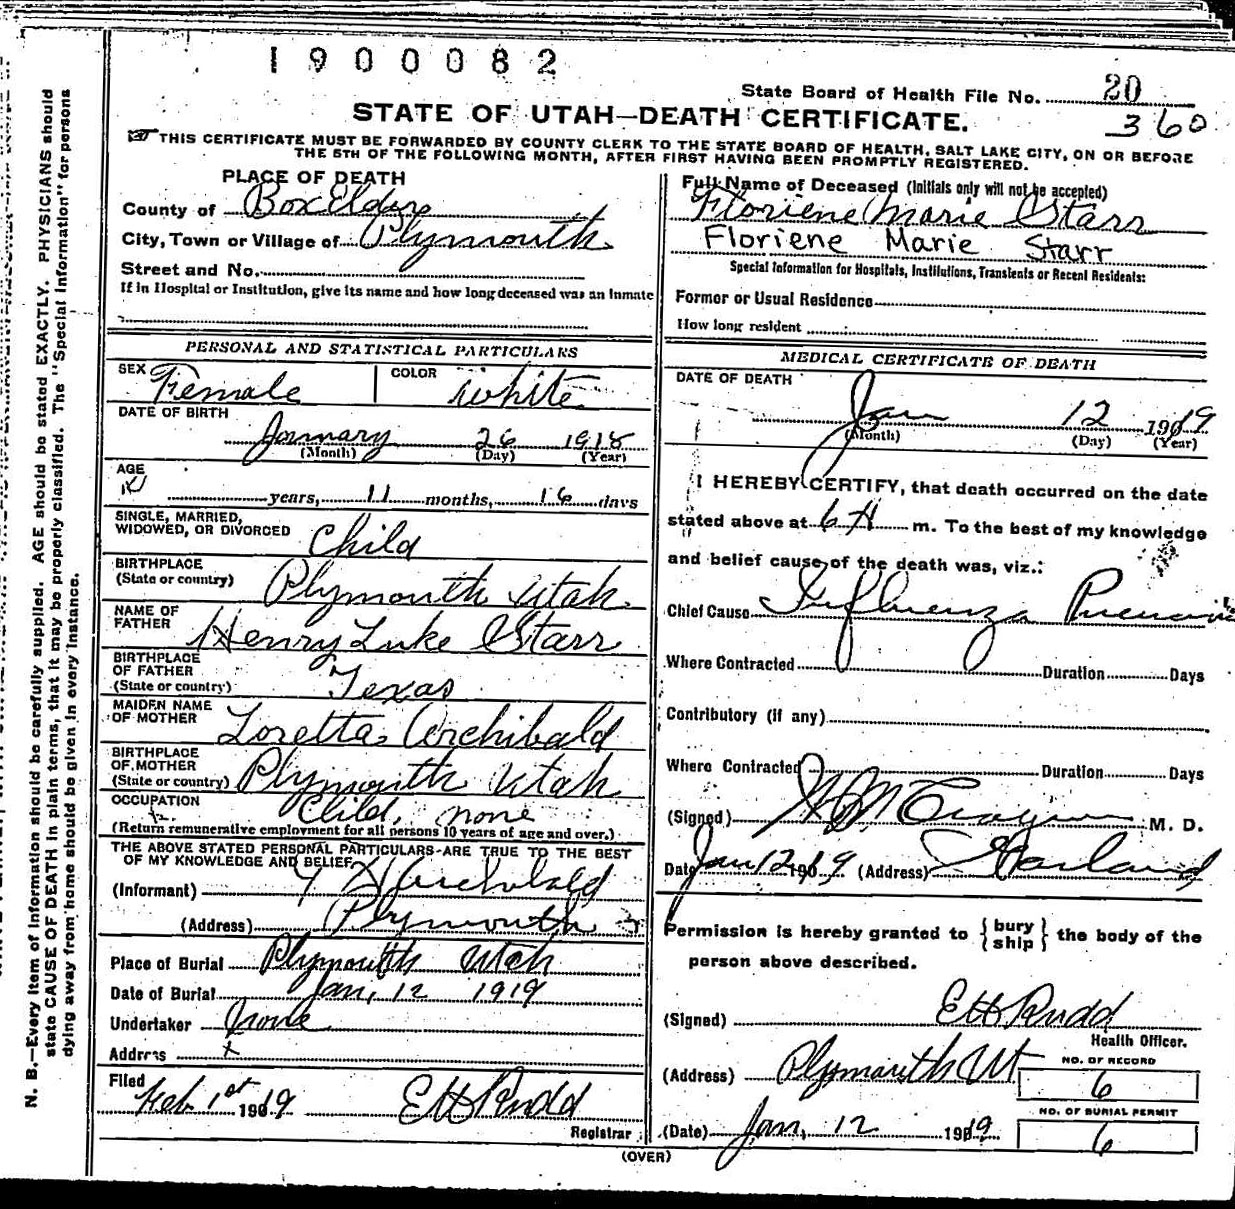 1900082
State Board of Health File No. 20
360
STATE OF UTAH—DEATH CERTIFICATE.
THIS CERTIFICATE MUST BE FORWARDED BY COUNTY CLERK TO THE STATE BOARD OF HEALTH, SALT LAKE CITY, ON OR BEFORE
THE 5TH OF THE FOLLOWING MONTH, AFTER FIRST HAVING BEEN PROMPTLY REGISTERED.
PLACE OF DEATH
County of Box Elder
City, Town or Village of Plymouth
Street and No.
If in Hospital or Institution, give its name and how long deceased was an inmate
Full Name of Deceased (Initials only will not be accepted)
Floriene Marie Starr
Floriene Marie Starr
Special Information for Hospitals, Institutions, Transients or Recent Residents:
Former or Usual Residence
How long resident
PERSONAL AND STATISTICAL PARTICULARS
SEX Female COLOR white
DATE OF BIRTH
January 26 1918
(Month) (Day) (Year)
AGE
years, 11 months, 16 days
SINGLE, MARRIED,
WIDOWED, OR DIVORCED Child
BIRTHPLACE
(State or country) Plymouth Utah
NAME OF
FATHER Henry Luke Starr
BIRTHPLACE
OF FATHER
(State or country) Texas
MAIDEN NAME
OF MOTHER Loretta Archibald
BIRTHPLACE
OF MOTHER
(State or country) Plymouth Utah
OCCUPATION Child, none
(Return remunerative employment for all persons 10 years of age and over.)
THE ABOVE STATED PERSONAL PARTICULARS ARE TRUE TO THE BEST
OF MY KNOWLEDGE AND BELIEF
(Informant) Archibald
(Address) Plymouth
Place of Burial Plymouth Utah
Date of Burial Jan, 12 1919
Undertaker None
Address x
Filed Feb 1st 1919 E H Rudd
Registrar
MEDICAL CERTIFICATE OF DEATH
DATE OF DEATH
Jan 12 1919
(Month) (Day) (Year)
I HEREBY CERTIFY, that death occurred on the date
stated above at 6 A m. To the best of my knowledge
and belief cause of the death was, viz.:
Chief Cause Influenza Pneumonia
Where Contracted Duration Days
Contributory (if any)
Where Contracted Duration Days
(Signed) M. D.
Date Jan 12 1919 (Address) Garland
Permission is hereby granted to {bury
ship} the body of the
person above described.
(Signed) E H Rudd
Health Officer.
(Address) Plymouth Ut
NO. OF RECORD
6
NO. OF BURIAL PERMIT
6
(Date) Jan, 12 1919
(OVER)
N. B.—Every item of information should be carefully supplied. AGE should be stated EXACTLY. PHYSICIANS should
state CAUSE OF DEATH in plain terms, that it may be properly classified. The "Special Information" for persons
dying away from home should be given in every instance.